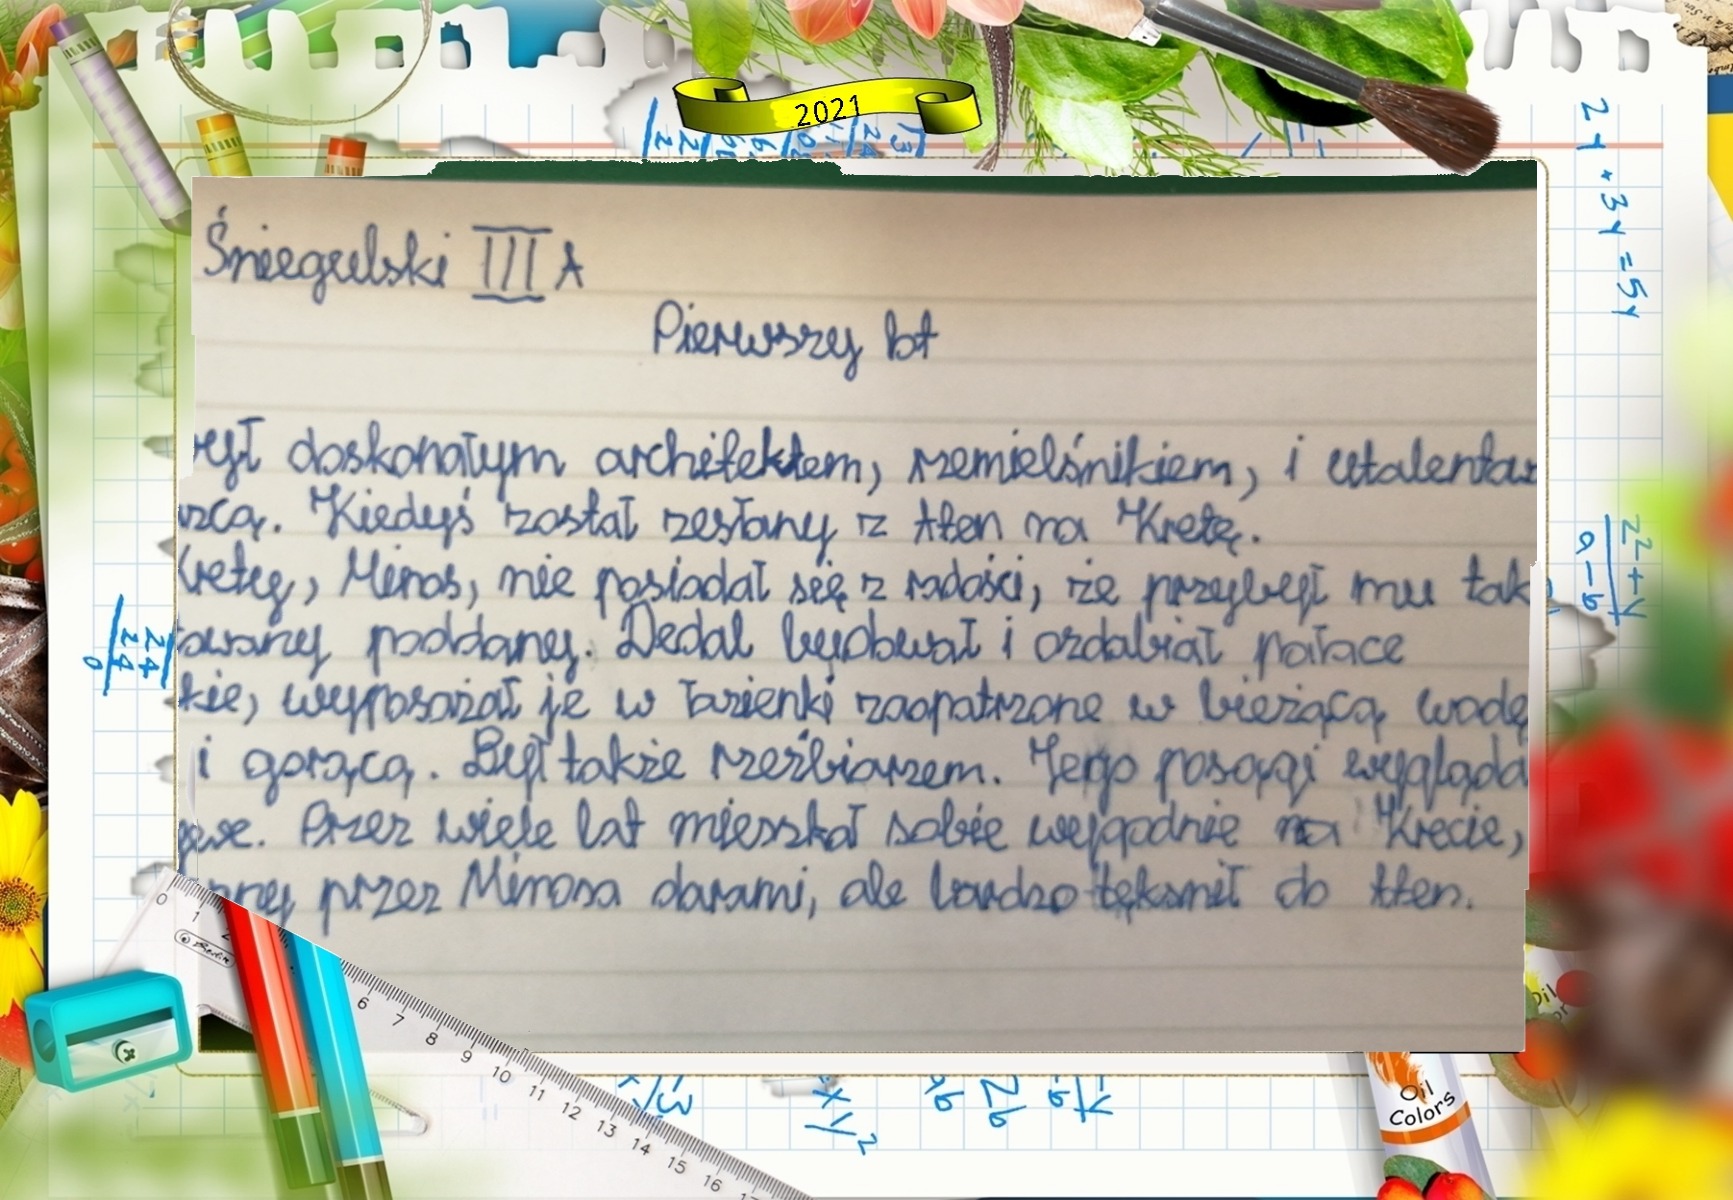 2021
Śniegulski III A
Pierwszy lot
był doskonałym architektem, rzemieślnikiem, i utalentow
rzcą. Kiedyś został zesłany z Aten na Kretę.
Krety, Minos, nie posiadał się z radości, że przybył mu tak
owany poddany. Dedal budował i ozdabiał pałace
kie, wyposażał je w łazienki zaopatrzone w bieżącą wodę
i gorącą. Był także rzeźbiarzem. Jego posągi wygląda
ywe. Przez wiele lat mieszkał sobie wygodnie na Krecie,
any przez Minosa darami, ale bardzo tęksnił do Aten.
2y+3y=5y
Oil
Colors
0 1 2 6 7 8 9 10 11 12 13 14 15 16